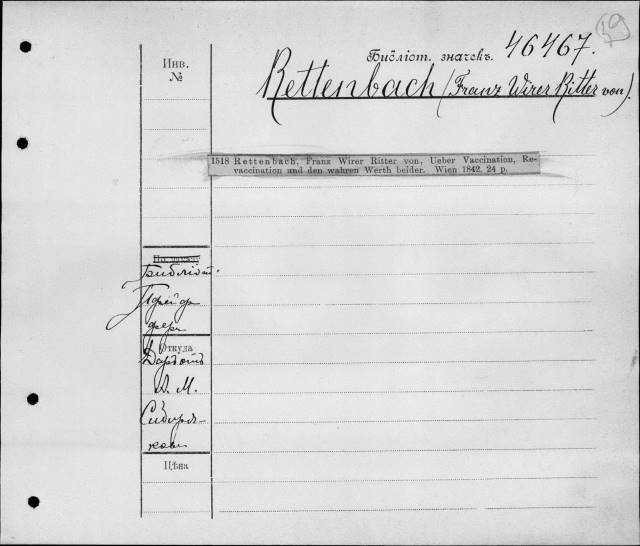 39
Библіот. значекъ. 46467.
Инв.
№
Rettenbach (Franz Wirer Ritter von).
1518 Rettenbach, Franz Wirer Ritter von, Ueber Vaccination, Re-
vaccination und den wahren Werth beider. Wien 1842. 24 p.
Библіот.
Пфейф
фера
Откуда
Даръ отъ
А. М.
Сибиря-
кова
Цѣна